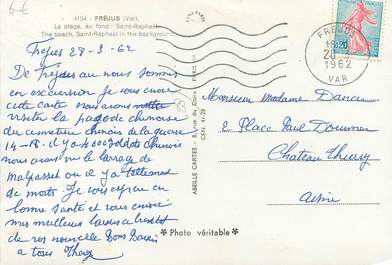 6€
4154 - FRÉJUS (Var).
La plage, au fond : Saint-Raphaël
The beach, Saint-Raphaël in the background
Frejus 28-3-62
De Fréjus ou nous sommes
en excursion je vous envoie
cette carte nous avons
visité la pagode chinoise
du cimetiere chinois de la guerre
14-18. il y a 4000 soldats chinois
nous avons vu le barrage de
malpasset ou il y a tellement
de morts. Je vous espere en
bonne santé et vous envoie
mes meilleurs
de vos nouvelle Bons Baisers
a tous
ABEILLE CARTES - PARIS
CEN 4128
FREJUS
18 H 20
1962
VAR
Monsieur Madame
2 Place Paul Doumer
Chateau Thierry
Aisne
★ Photo véritable ★